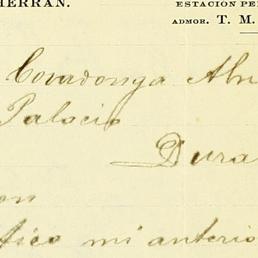 HERRAN.
ESTACION PE
ADMOR. T. M.
Covadonga
Palacio
Dura
on
fico mi anterio